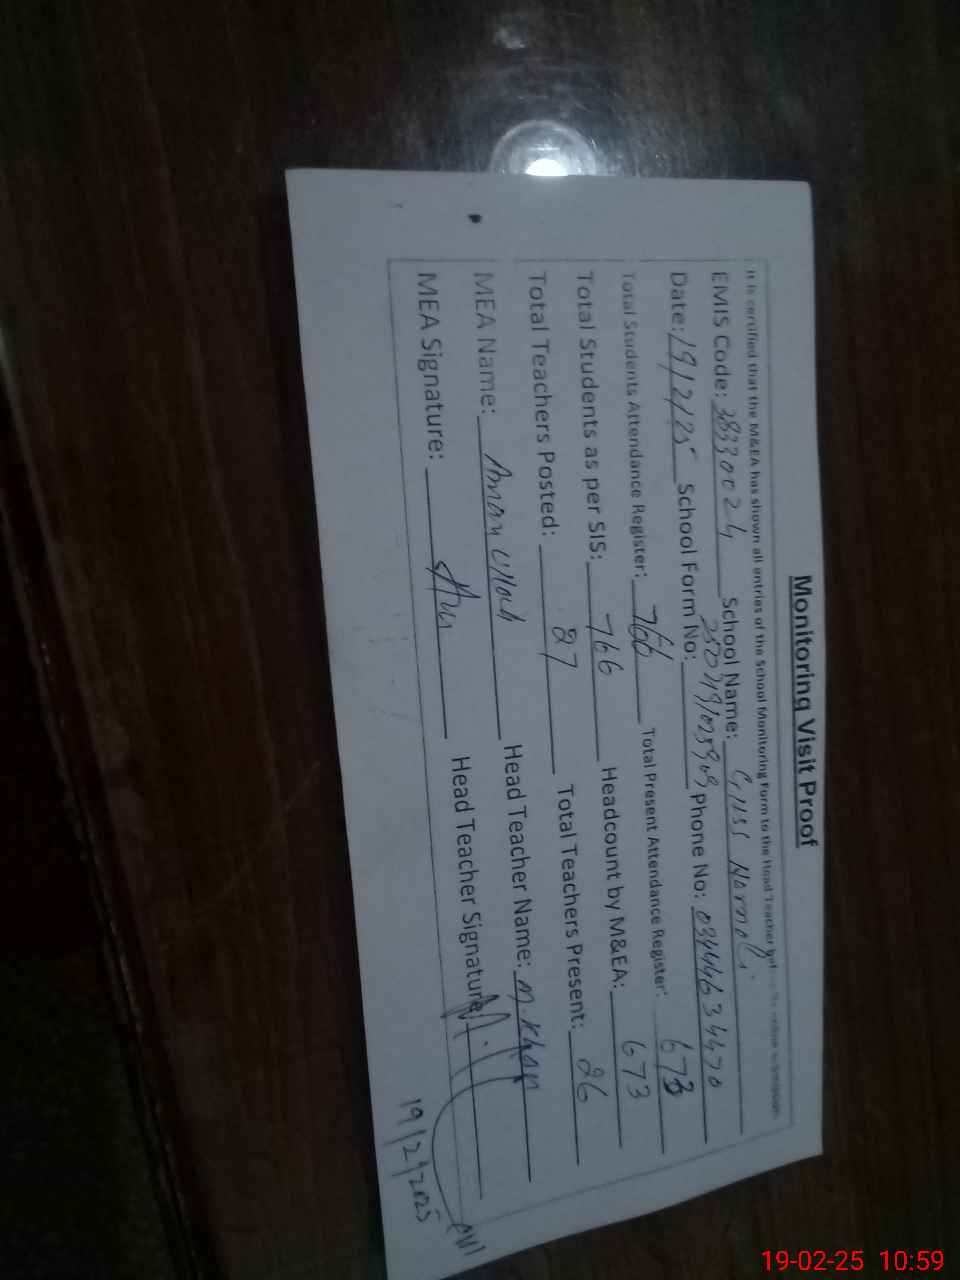 Monitoring Visit Proof
It is certified that the M&EA has shown all entries of the School Monitoring Form to the Head Teacher
EMIS Code: 38330024 School Name: GHSS Normali
Date: 19/2/25 School Form No: Phone No: 03444634470
Total Students Attendance Register: 766 Total Present Attendance Register: 673
Total Students as per SIS: 766 Headcount by M&EA: 673
Total Teachers Posted: 27 Total Teachers Present: 26
MEA Name: Aman Ullah Head Teacher Name: M. Khan
MEA Signature: Head Teacher Signature:
19/2/2025
19-02-25 10:59